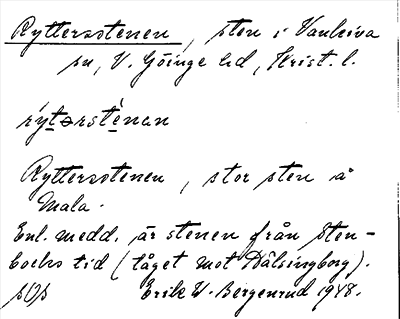 Ryttersstenen, sten i Vankiva
sn, V. Göinge hd, Krist. l.
rýtərsténan
Ryttersstenen, stor sten å
Mala.
Enl. medd. är stenen från Sten-
bocks tid (tåget mot Hälsingborg).
Erik W. Bergenrud 1948.